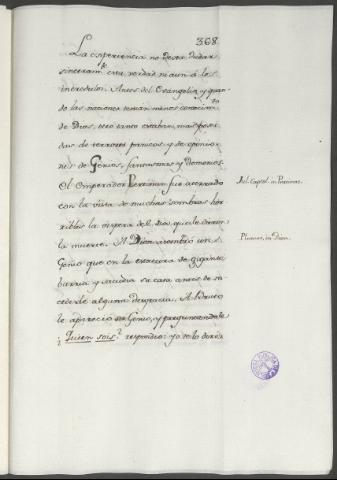 368.
La esperiencia no dexa dudar
sinceram.te esta verdad ni aun á los
incredulos. Antes del Evangelio, y quan-
do las naciones tenian menos conocim.to
de Dios, tanto estaban mas posei-
das de terrores panicos y de opinio-
nes de Genios, fantasmas y demonios.
El emperador Pertinax fue aterrado
con la vista de muchas sombras hor-
ribles la vispera del dia que le dieron
la muerte. A Dion asombró un
Genio que en la estatura de gigante
barria y sacudia su casa antes de su-
cederle alguna desgracia. A Bruto
le apareció su Genio, y preguntandole
¿Quien sois? respondio: yo te lo diré
Jul. Capitol. in Pertinac.
Plutarc. in Dion.